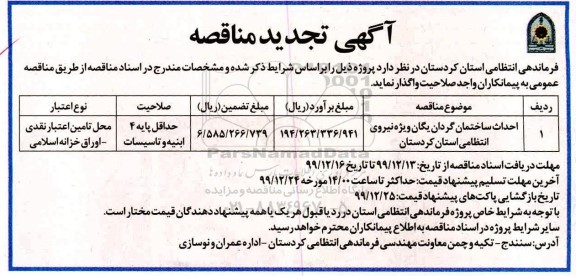 آگهی تجدید مناقصه
فرماندهی انتظامی استان کردستان در نظر دارد پروژه ذیل را براساس شرایط ذکر شده و مشخصات مندرج در اسناد مناقصه از طریق مناقصه
عمومی به پیمانکاران واجد صلاحیت واگذار نماید.
ردیف موضوع مناقصه مبلغ برآورد(ریال) مبلغ تضمین(ریال) صلاحیت نوع اعتبار
۱ احداث ساختمان گردان یگان ویژه نیروی انتظامی استان کردستان ۱۹۴/۲۶۳/۳۳۶/۹۴۱ ۶/۵۸۵/۲۶۶/۷۳۹ حداقل پایه ۴ ابنیه و تاسیسات محل تامین اعتبار نقدی -اوراق خزانه اسلامی
مهلت دریافت اسناد مناقصه از تاریخ: ۹۹/۱۲/۱۳ تا تاریخ ۹۹/۱۲/۱۶
آخرین مهلت تسلیم پیشنهاد قیمت: حداکثر تا ساعت ۱۴/۰۰ مورخه ۹۹/۱۲/۲۴
تاریخ بازگشایی پاکت‌های پیشنهاد قیمت: ۹۹/۱۲/۲۵
با توجه به شرایط خاص پروژه فرماندهی انتظامی استان در رد یا قبول هر یک یا همه پیشنهاد دهندگان قیمت مختار است.
سایر شرایط پروژه در اسناد مناقصه به اطلاع پیمانکاران محترم خواهد رسید.
آدرس: سنندج- تکیه و چمن معاونت مهندسی فرماندهی انتظامی کردستان -اداره عمران و نوسازی
ParsNamadData